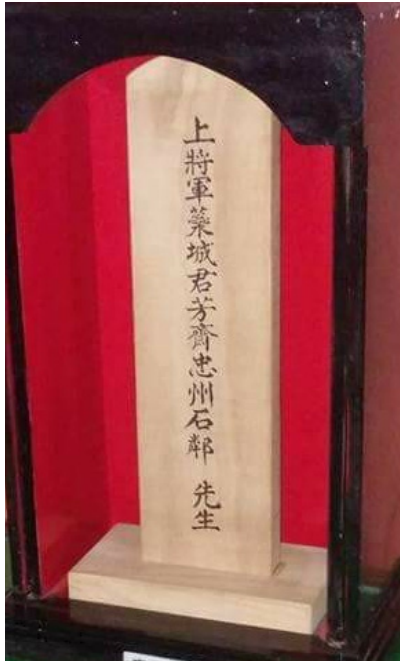 上將軍蘂城君芳齊忠州石鄰 先生